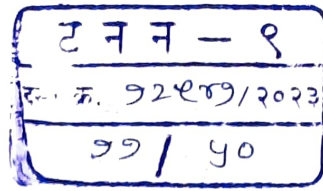 ट न न — ९
द. क्र. १२९४१/२०२३
११ / ५०